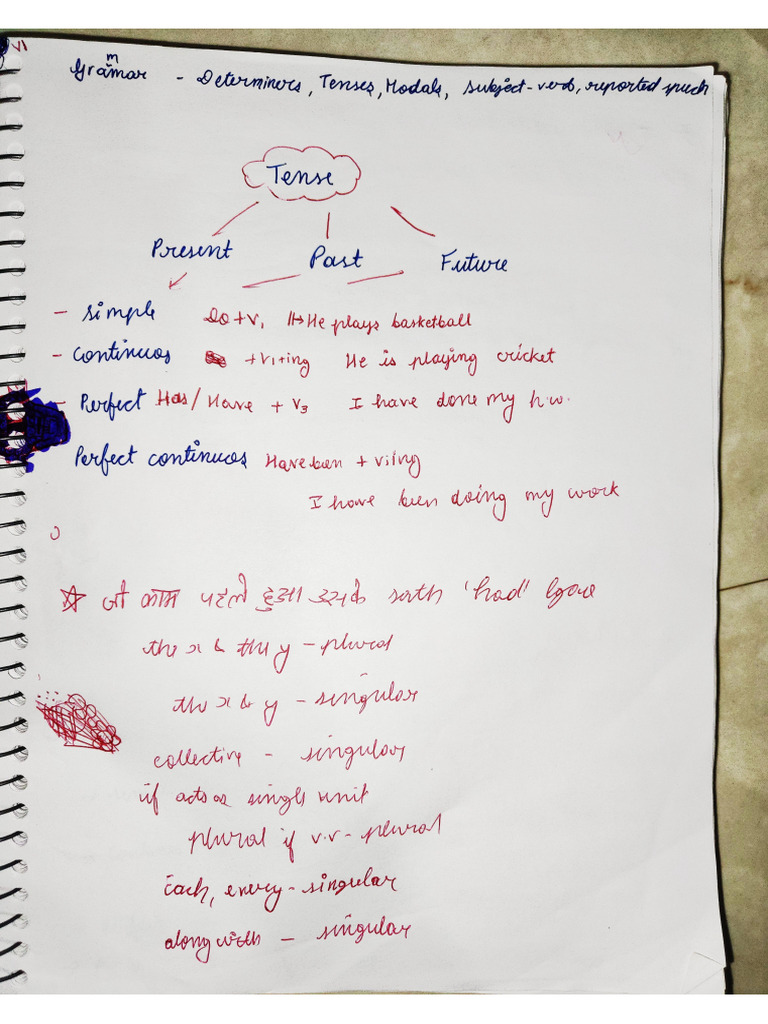 VI
Grammar - Determiners, Tenses, Modals, subject-verb, reported speech
Tense
Present Past Future
- Simple Do + V₁ He plays basketball
- Continuos + V₁ + ing He is playing cricket
- Perfect Has/Have + V₃ I have done my h.w.
Perfect continuos Have been + V₁ing
I have been doing my work
जो काम पहले हुआ उसके sath 'had' lgore
the x & the y - plural
the x & y - singular
collective - singular
if acts as single unit
plural if v.v - plural
each, every - singular
along with - singular